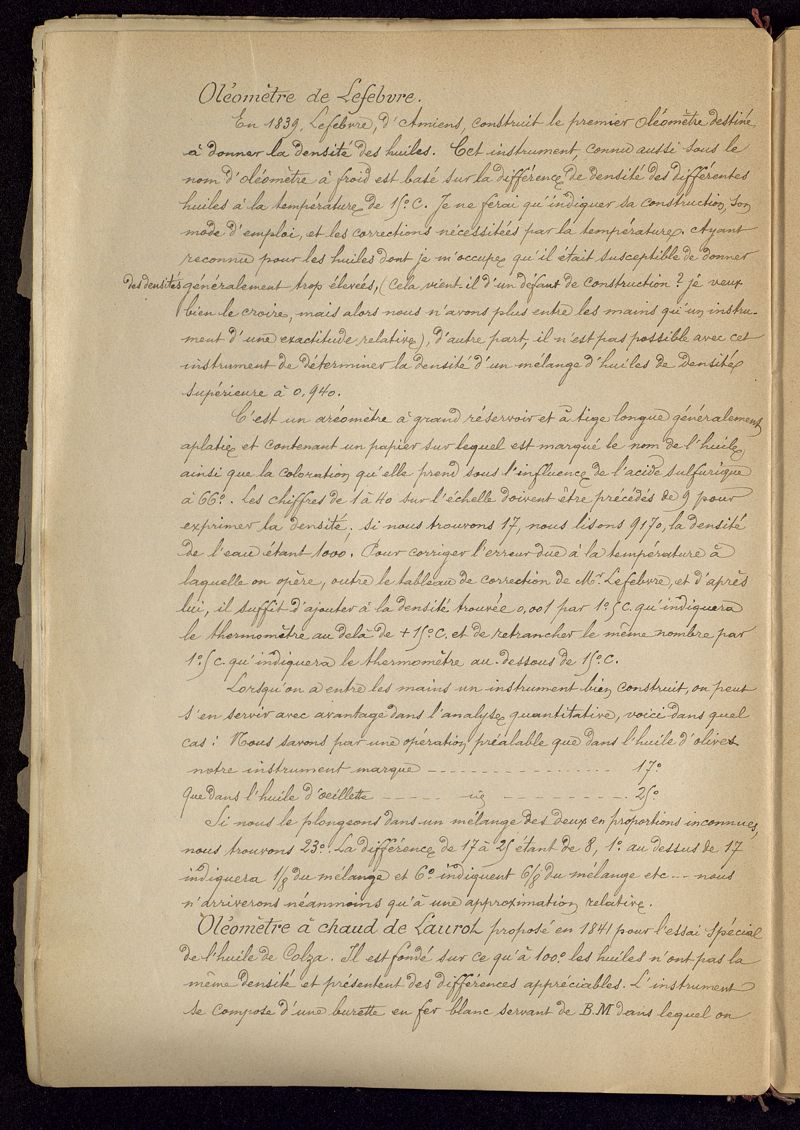 Oléomètre de Lefebvre.
En 1839, Lefebvre, d'Amiens, construit le premier oléomètre destiné
à donner la densité des huiles. Cet instrument, connu aussi sous le
nom d'oléomètre à froid est basé sur la différence de densité des différentes
huiles à la température de 15°. C. Je ne ferai qu'indiquer sa construction, son
mode d'emploi, et les corrections nécessitées par la température. Ayant
reconnu pour les huiles dont je m'occupe qu'il était susceptible de donner
des densités généralement trop élevées, (Cela vient-il d'un défaut de construction? je veux
bien le croire, mais alors nous n'avons plus entre les mains qu'un instru-
ment d'une exactitude relative), d'autre part, il n'est pas possible avec cet
instrument de déterminer la densité d'un mélange d'huiles de densité
supérieure à 0,940.
C'est un aréomètre à grand réservoir et à tige longue généralement
aplatie et contenant un papier sur lequel est marqué le nom de l'huile
ainsi que la coloration qu'elle prend sous l'influence de l'acide sulfurique
à 66°. Les chiffres de 1 à 40 sur l'échelle doivent être précédés de 9 pour
exprimer la densité; si nous trouvons 17, nous lisons 9170, la densité
de l'eau étant 1000. Pour corriger l'erreur due à la température à
laquelle on opère, outre le tableau de correction de Mr Lefebvre, et d'après
lui, il suffit d'ajouter à la densité trouvée 0,001 par 1°5 C. qu'indiquera
le thermomètre au delà de + 15°C. et de retrancher le même nombre par
1°5 C. qu'indiquera le thermomètre au-dessous de 15°C.
Lorsqu'on a entre les mains un instrument bien construit, on peut
s'en servir avec avantage dans l'analyse quantitative, voici dans quel
cas: Nous savons par une opération préalable que dans l'huile d'olives
notre instrument marque - - - - - - - - - - 17°
que dans l'huile d'oeillette - - - - - id - - - - - - - - - - 25°
Si nous le plongeons dans un mélange des deux en proportions inconnues,
nous trouvons 23°. La différence de 17 à 25 étant de 8, 1° au dessus de 17
indiquera 1/8 du mélange et 6° indiquent 6/8 du mélange etc --- nous
n'arriverons néanmoins qu'à une approximation relative.
Oléomètre à chaud de Laurot proposé en 1841 pour l'essai spécial
de l'huile de Colza. Il est fondé sur ce qu'à 100° les huiles n'ont pas la
même densité et présentent des différences appréciables. L'instrument
se compose d'une burette en fer blanc servant de B.M dans lequel on